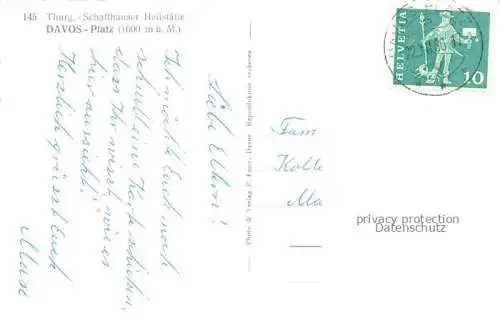 145 Thurg. - Schaffhauser Heilstätte
DAVOS - Platz (1600 m ü. M.)
Liebe Eltern!
Ich möchte Euch noch
schnell eine Karte schicken,
dass Ihr wisst wie es
hier aussieht.
Herzlich grüsst Euch
Photo & Verlag
Davos Reproduktion verboten
HELVETIA
10
Fam
Kolle
Ma
privacy protection
Datenschutz